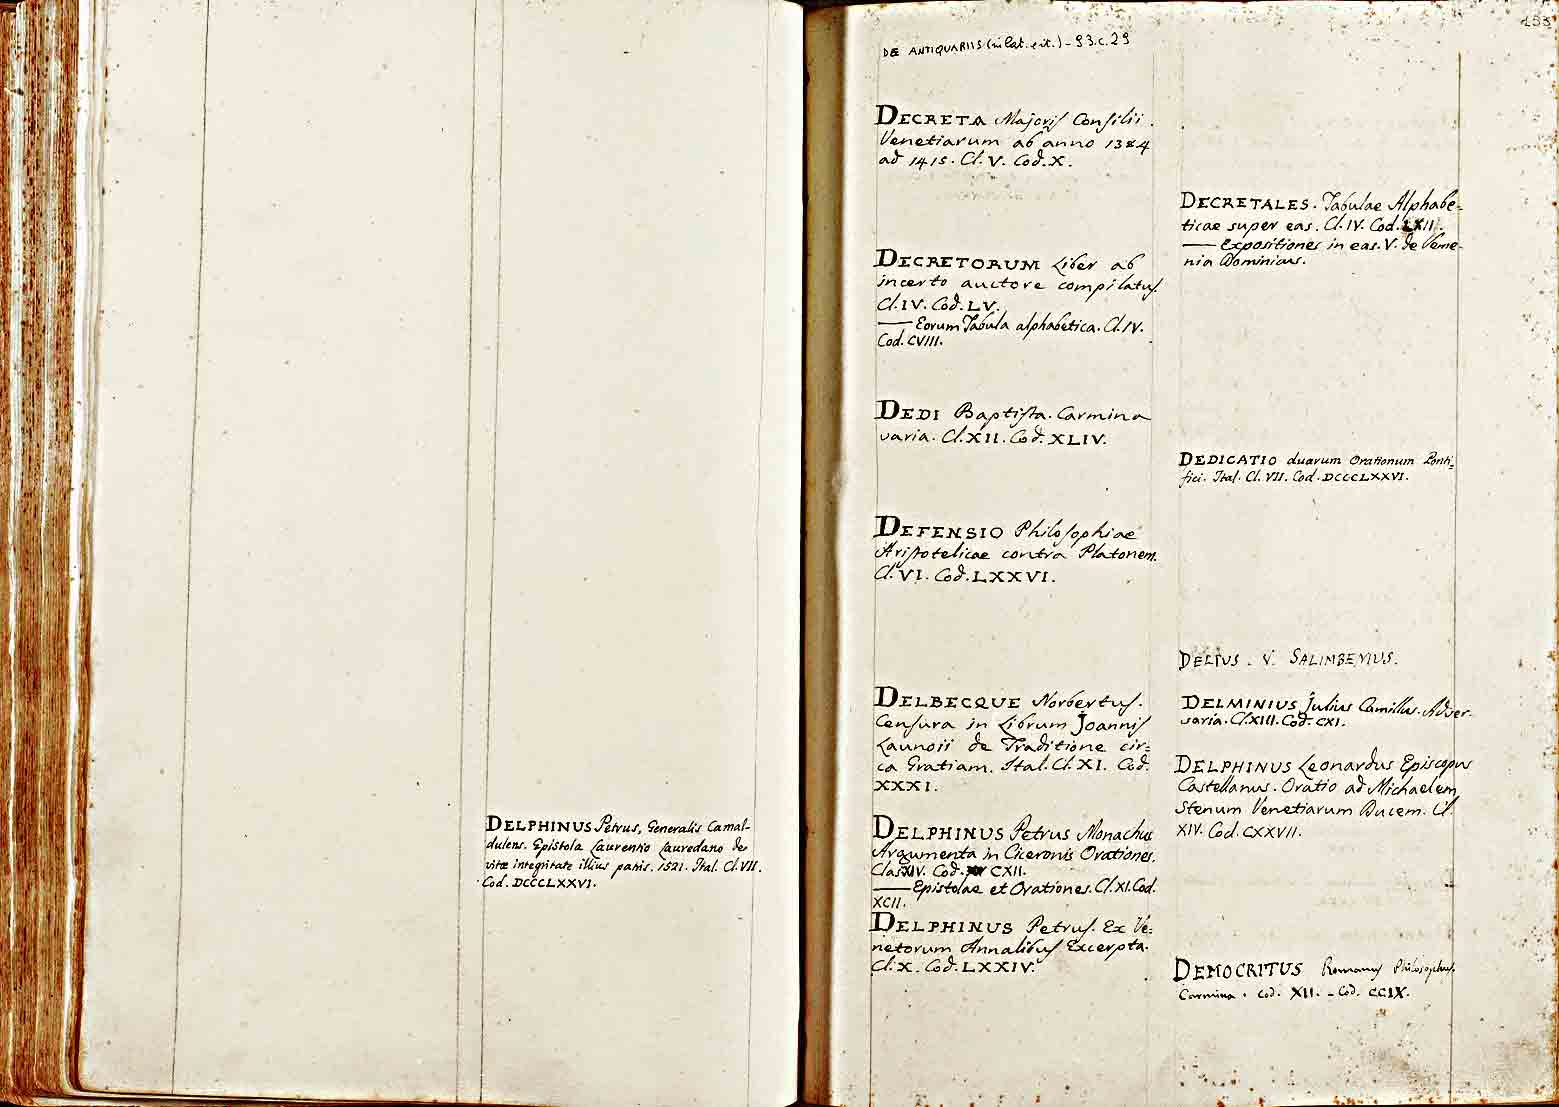 DELPHINUS Petrus, Generalis Camal-
dulens. Epistola Laurentio Lauredano de
vitæ integritate illius patris. 1521. Ital. Cl. VII.
Cod. DCCCLXXVI.
DE ANTIQUARIIS (in Lat. e it.) - 93.c.29
DECRETA Majoris Consilii
Venetiarum ab anno 1384
ad 1415. Cl. V. Cod. X.
DECRETORUM Liber ab
incerto auctore compilatus.
Cl. IV. Cod. LV.
—— Eorum Tabula alphabetica. Cl. IV.
Cod. CVIII.
DEDI Baptista. Carmina
varia. Cl. XII. Cod. XLIV.
DEFENSIO Philosophiae
Aristotelicae contra Platonem.
Cl. VI. Cod. LXXVI.
DELBECQUE Norbertus.
Censura in Librum Joannis
Launoii de Traditione cir=
ca Gratiam. Ital. Cl. XI. Cod.
XXXI.
DELPHINUS Petrus Monachus
Argumenta in Ciceronis Orationes.
Clas XIV. Cod. CXII.
—— Epistolae et Orationes. Cl. XI. Cod.
XCII.
DELPHINUS Petrus. Ex Ve=
netorum Annalibus Excerpta.
Cl. X. Cod. LXXIV.
DECRETALES. Tabulae Alphabe=
ticae super eas. Cl. IV. Cod. LXII.
—— Expositiones in eas. V. de Vene-
nia Dominicus.
DEDICATIO duarum Orationum Ponti=
fici. Ital. Cl. VII. Cod. DCCCLXXVI.
DELIUS. V. SALIMBENIUS.
DELMINIUS Julius Camillus. Adver-
saria. Cl. XIII. Cod. CXI.
DELPHINUS Leonardus Episcopus
Castellanus. Oratio ad Michaelem
Stenum Venetiarum Ducem. Cl
XIV. Cod. CXXVII.
DEMOCRITUS Romanus Philosophus.
Carmina. Cod. XII. - Cod. CCIX.